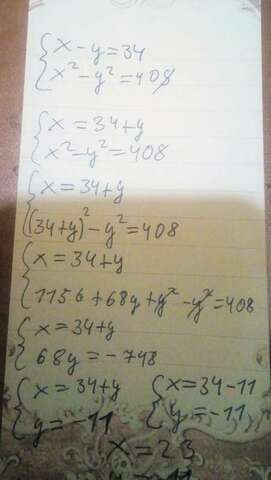 {x - y = 34
x² - y² = 408
{x = 34 + y
x² - y² = 408
{x = 34 + y
(34 + y)² - y² = 408
{x = 34 + y
1156 + 68y + y² - y² = 408
{x = 34 + y
68y = -748
{x = 34 + y {x = 34 - 11
y = -11 y = -11
x = 23